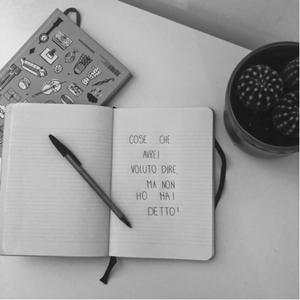 COSE CHE
AVREI
VOLUTO DIRE,
MA NON
HO MAI
DETTO!